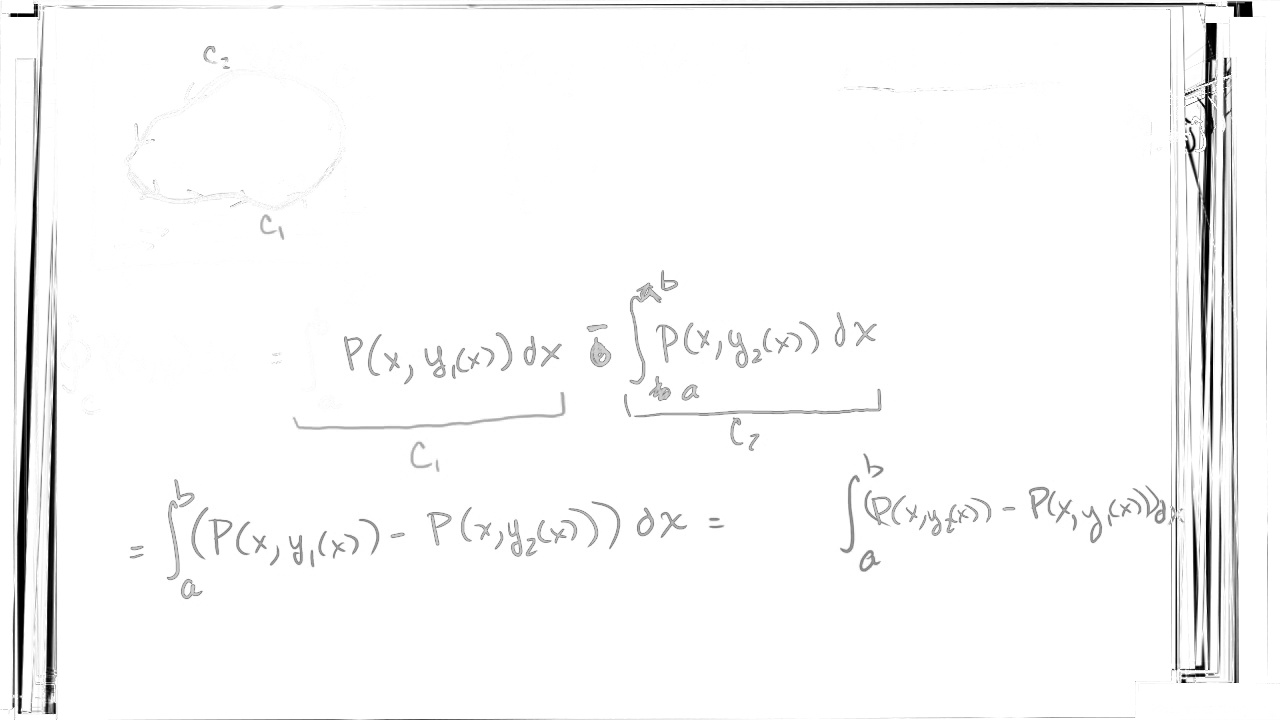 C₂
C₁
= P(x, y₁(x)) dx - ∫ₐᵇ P(x, y₂(x)) dx
C₁ C₂
= ∫ₐᵇ (P(x, y₁(x)) - P(x, y₂(x))) dx = ∫ₐᵇ (P(x, y₂(x)) - P(x, y₁(x))) dx